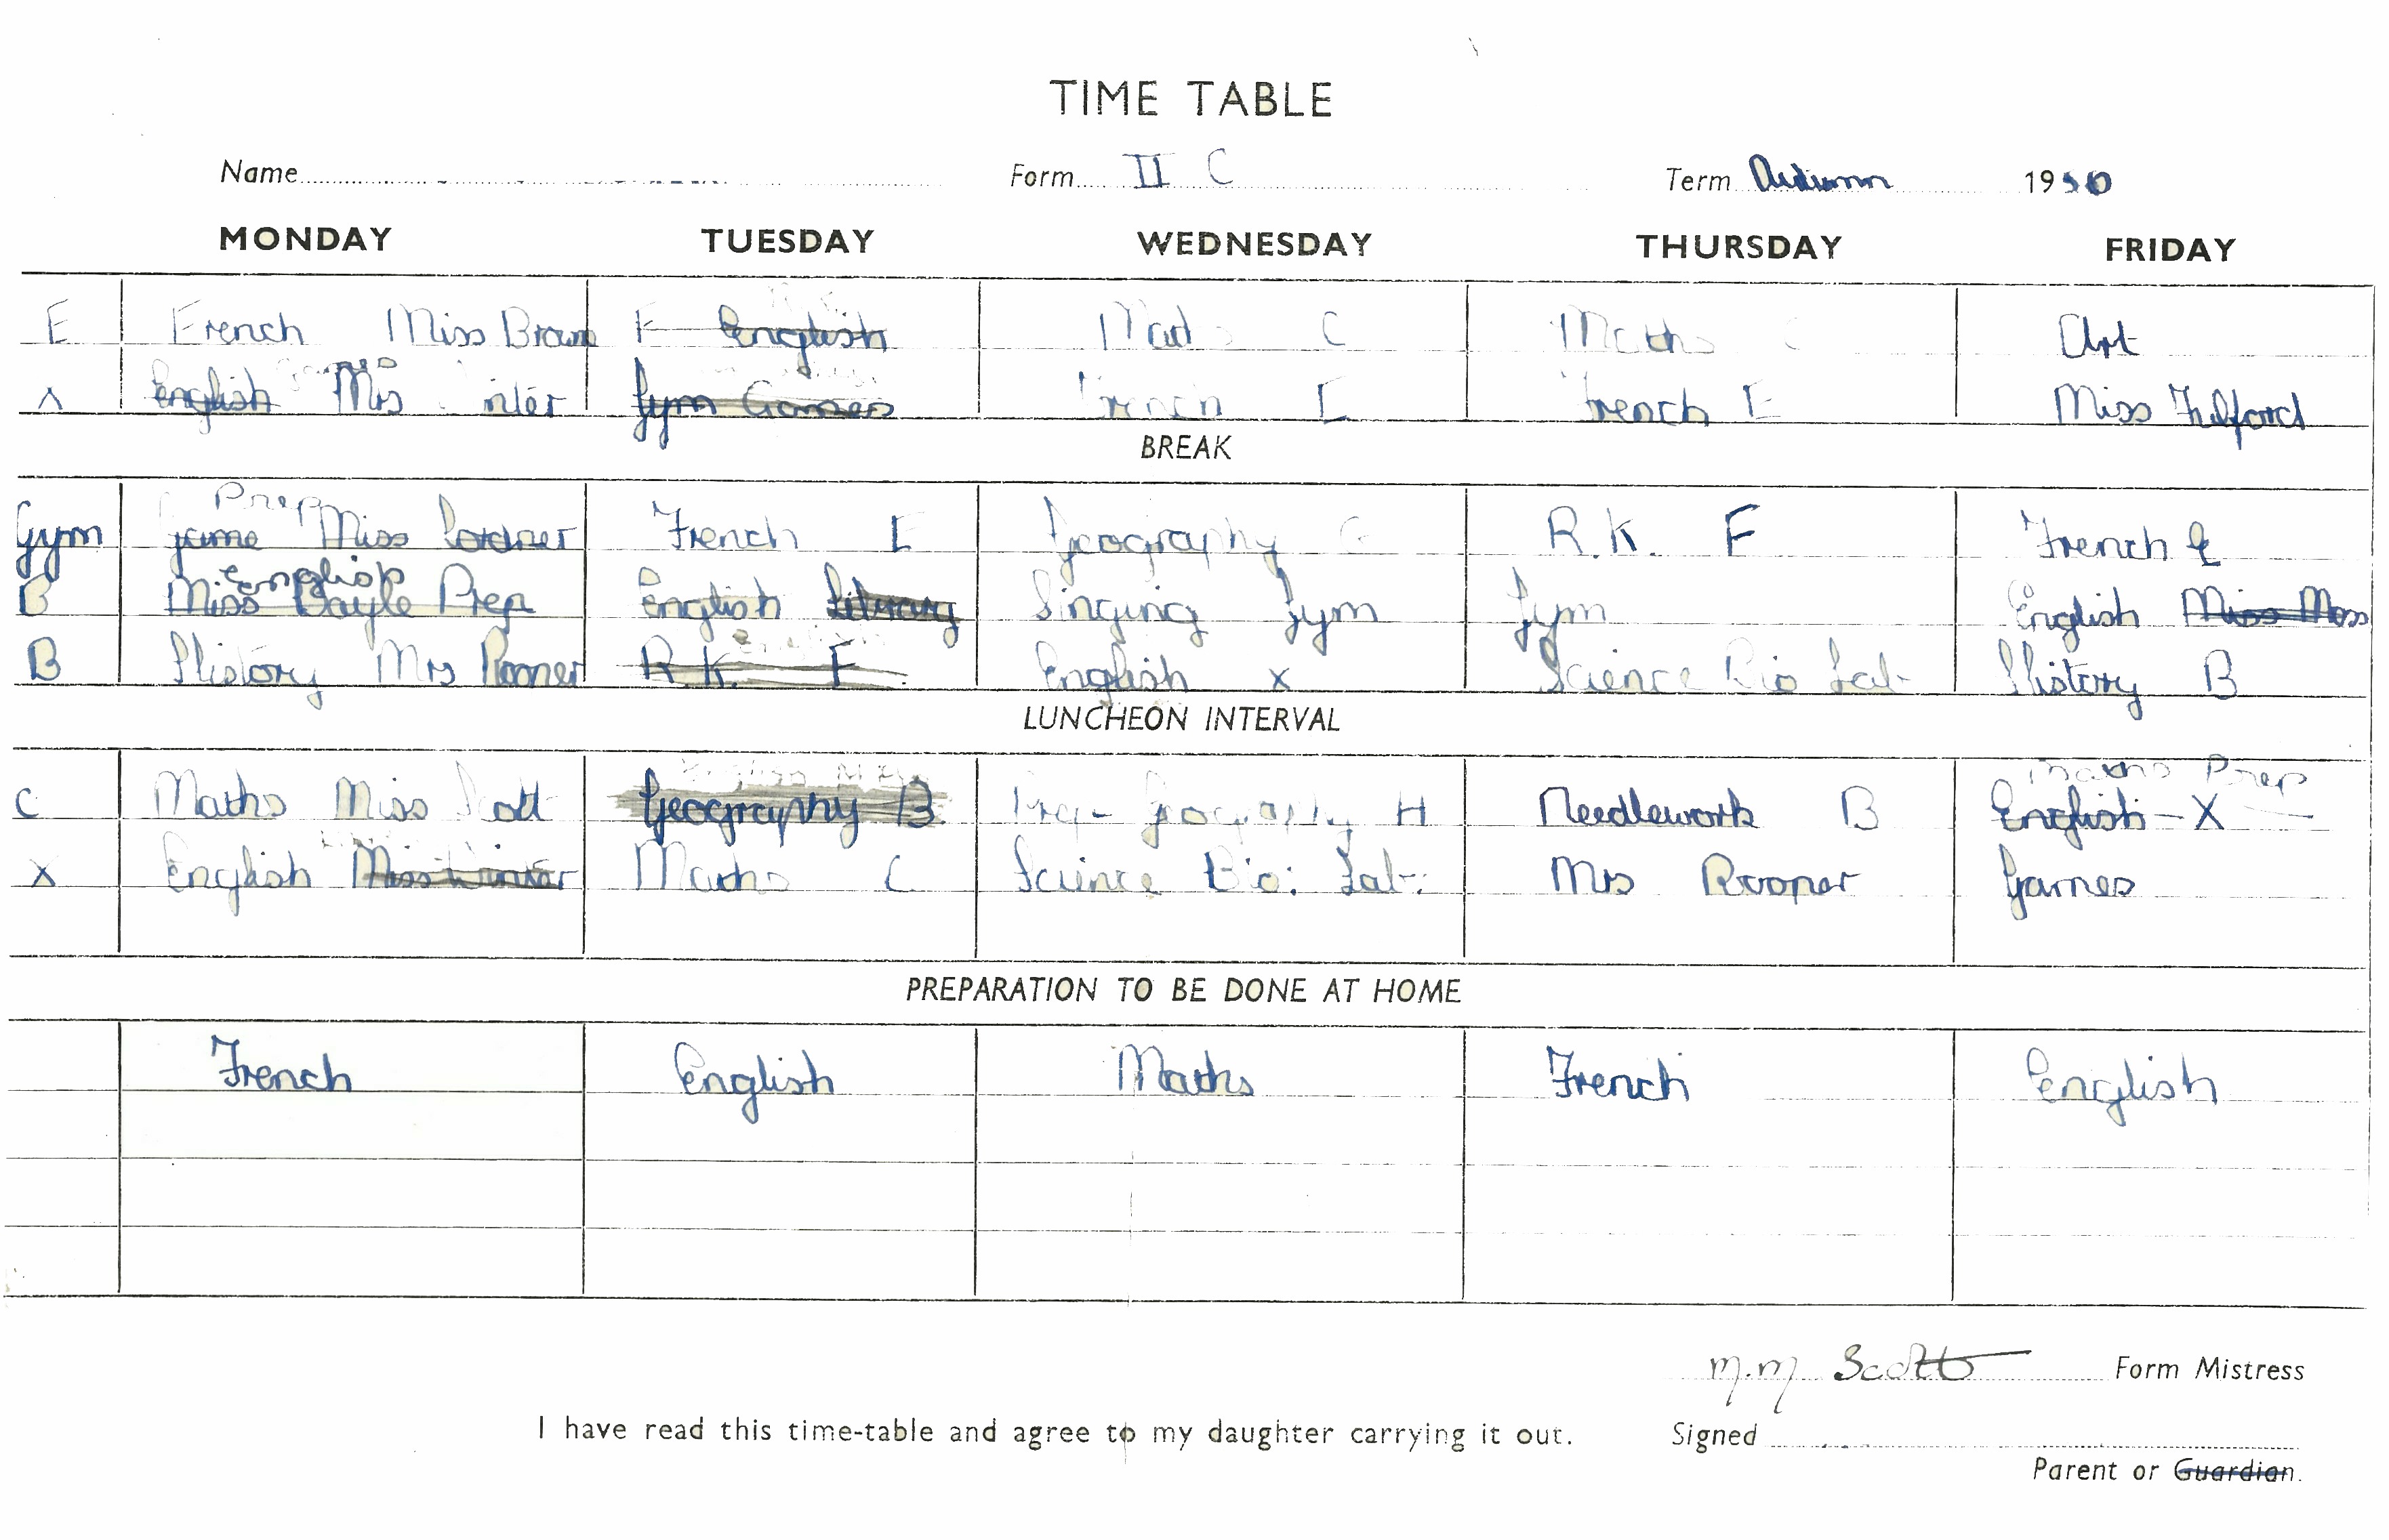 TIME TABLE
Name Form II C Term Autumn 1950
MONDAY TUESDAY WEDNESDAY THURSDAY FRIDAY
E French Miss Brown F English C Maths Art
English Mrs Gym Games French E French E Miss Telford
BREAK
Prep
Gym game Miss French E Geography R.K. F French E
English
B Miss Prep English Singing Gym Gym English Miss Moss
B History Mrs R.K. F English x Science Bio Lab History B
LUNCHEON INTERVAL
Prep
C Maths Miss Scott Geography B Prep Geography H Needlework B English X
X English Miss Winter Maths C Science Bio: Lab: Mrs Rooper Games
PREPARATION TO BE DONE AT HOME
French English Maths French English
M.M Scott Form Mistress
I have read this time-table and agree to my daughter carrying it out. Signed
Parent or Guardian.